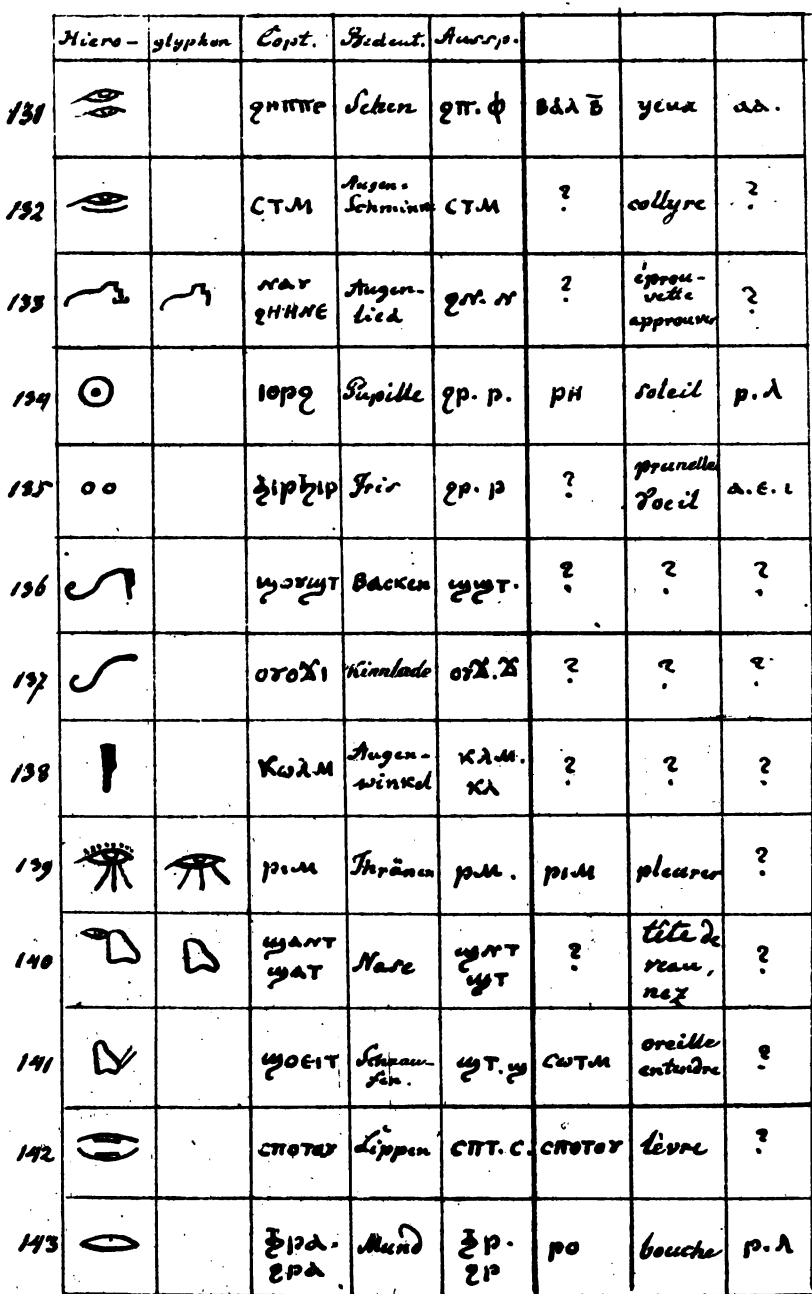 Hiero- glyphen Copt. Bedeut. Aussp.
131 ϩⲏⲡⲡⲉ Sehen ϩⲡ. ϕ ⲃⲁⲗ ⲃ̄ yeux ⲁⲁ.
132 ⲥⲧⲙ Augen- Schminke ⲥⲧⲙ ? collyre ?
133 ⲛⲁⲩ ϩⲏⲏⲛⲉ Augen- lied ϩⲛ. ⲛ ? éprou- vette approuver ?
134 ⲓⲟⲣϩ Pupille ϩⲣ. ⲣ. ⲣⲏ soleil ⲣ.ⲗ
135 ϧⲓⲣϧⲓⲣ Iris ϩⲣ. ⲣ ? prunelle d'oeil ⲁ.ⲉ.ⲓ
136 ϣⲟⲩϣⲧ Backen ϣϣⲧ. ? ? ?
137 ⲟⲩⲟϫⲓ Kinnlade ⲟⲩϫ.ϫ ? ? ?
138 ⲕⲱⲗⲙ Augen- winkel ⲕⲗⲙ. ⲕⲗ ? ? ?
139 ⲣⲓⲙ Thränen ⲣⲙ. ⲣⲓⲙ pleurer ?
140 ϣⲁⲛⲧ ϣⲁⲧ Nase ϣⲛⲧ ϣⲧ ? tête de veau, nez ?
141 ϣⲟⲉⲓⲧ Schnau- fen. ϣⲧ.ϣ ⲥⲱⲧⲙ oreille entendre ?
142 ⲥⲡⲟⲧⲟⲩ Lippen ⲥⲡⲧ.ⲥ. ⲥⲡⲟⲧⲟⲩ lèvre ?
143 ϧⲣⲁ. ϩⲣⲁ Mund ϧⲣ. ϩⲣ ⲣⲟ bouche ⲣ.ⲗ